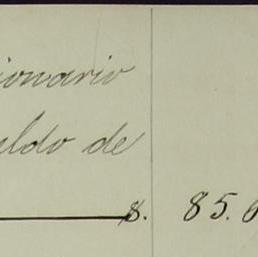 ionario
aldo de
$. 85.6